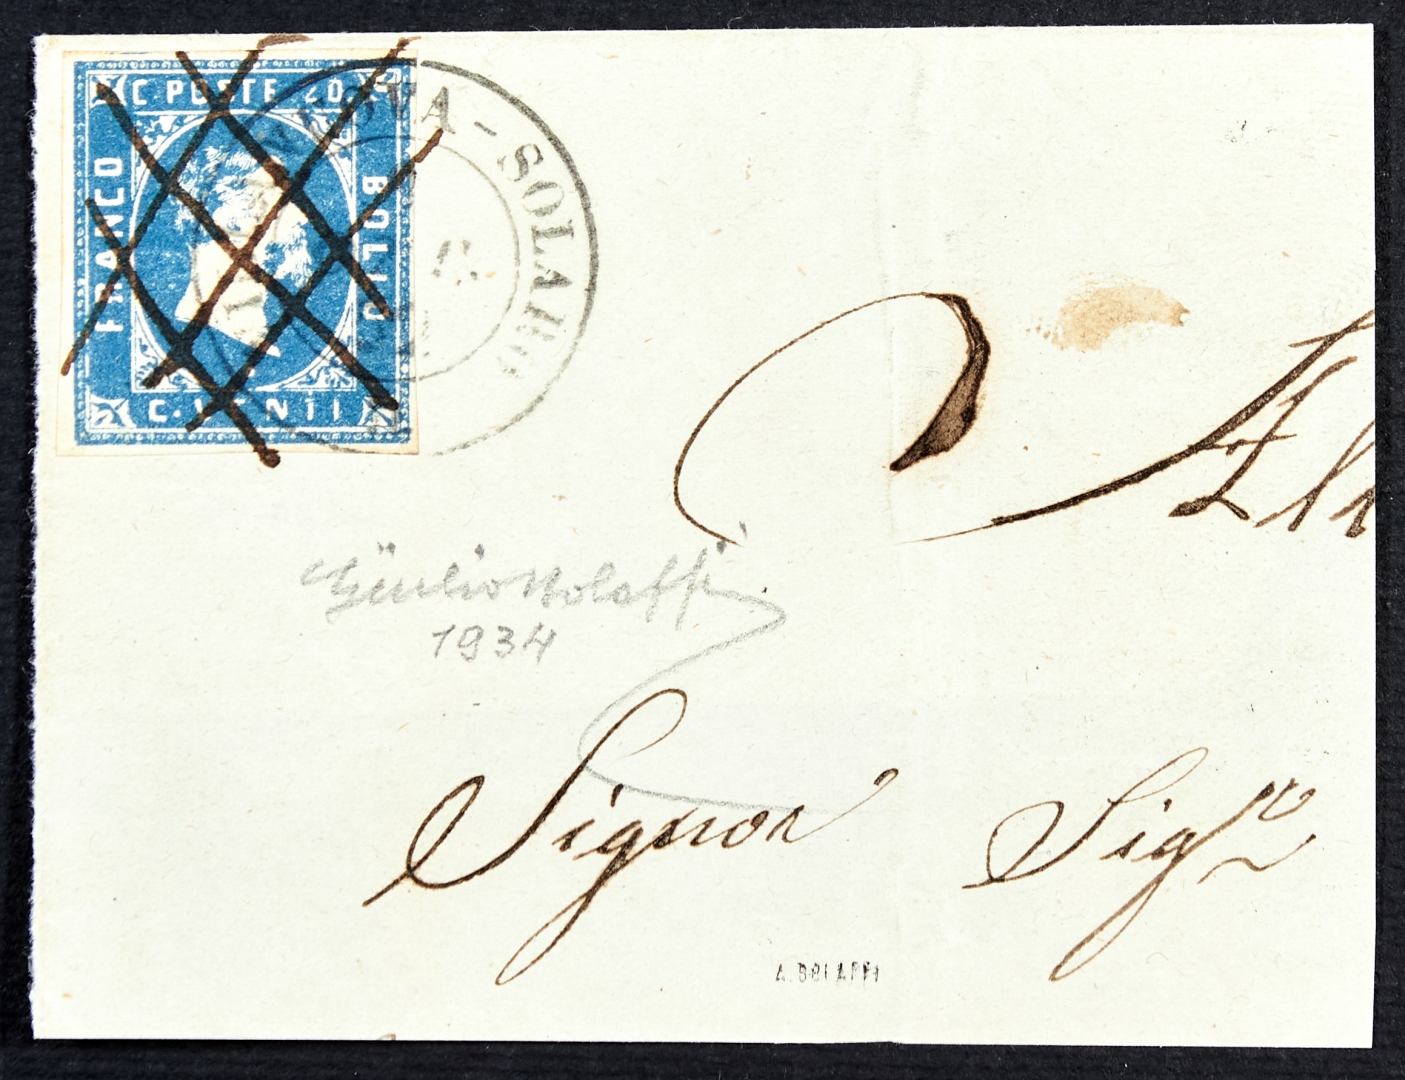 C. POSTE 20
FRANCO
BOLLO
C. VENTI
VILLANOVA-SOLARO
Giulio Bolaffi
1934
Signor Sigr
A. BOLAFFI